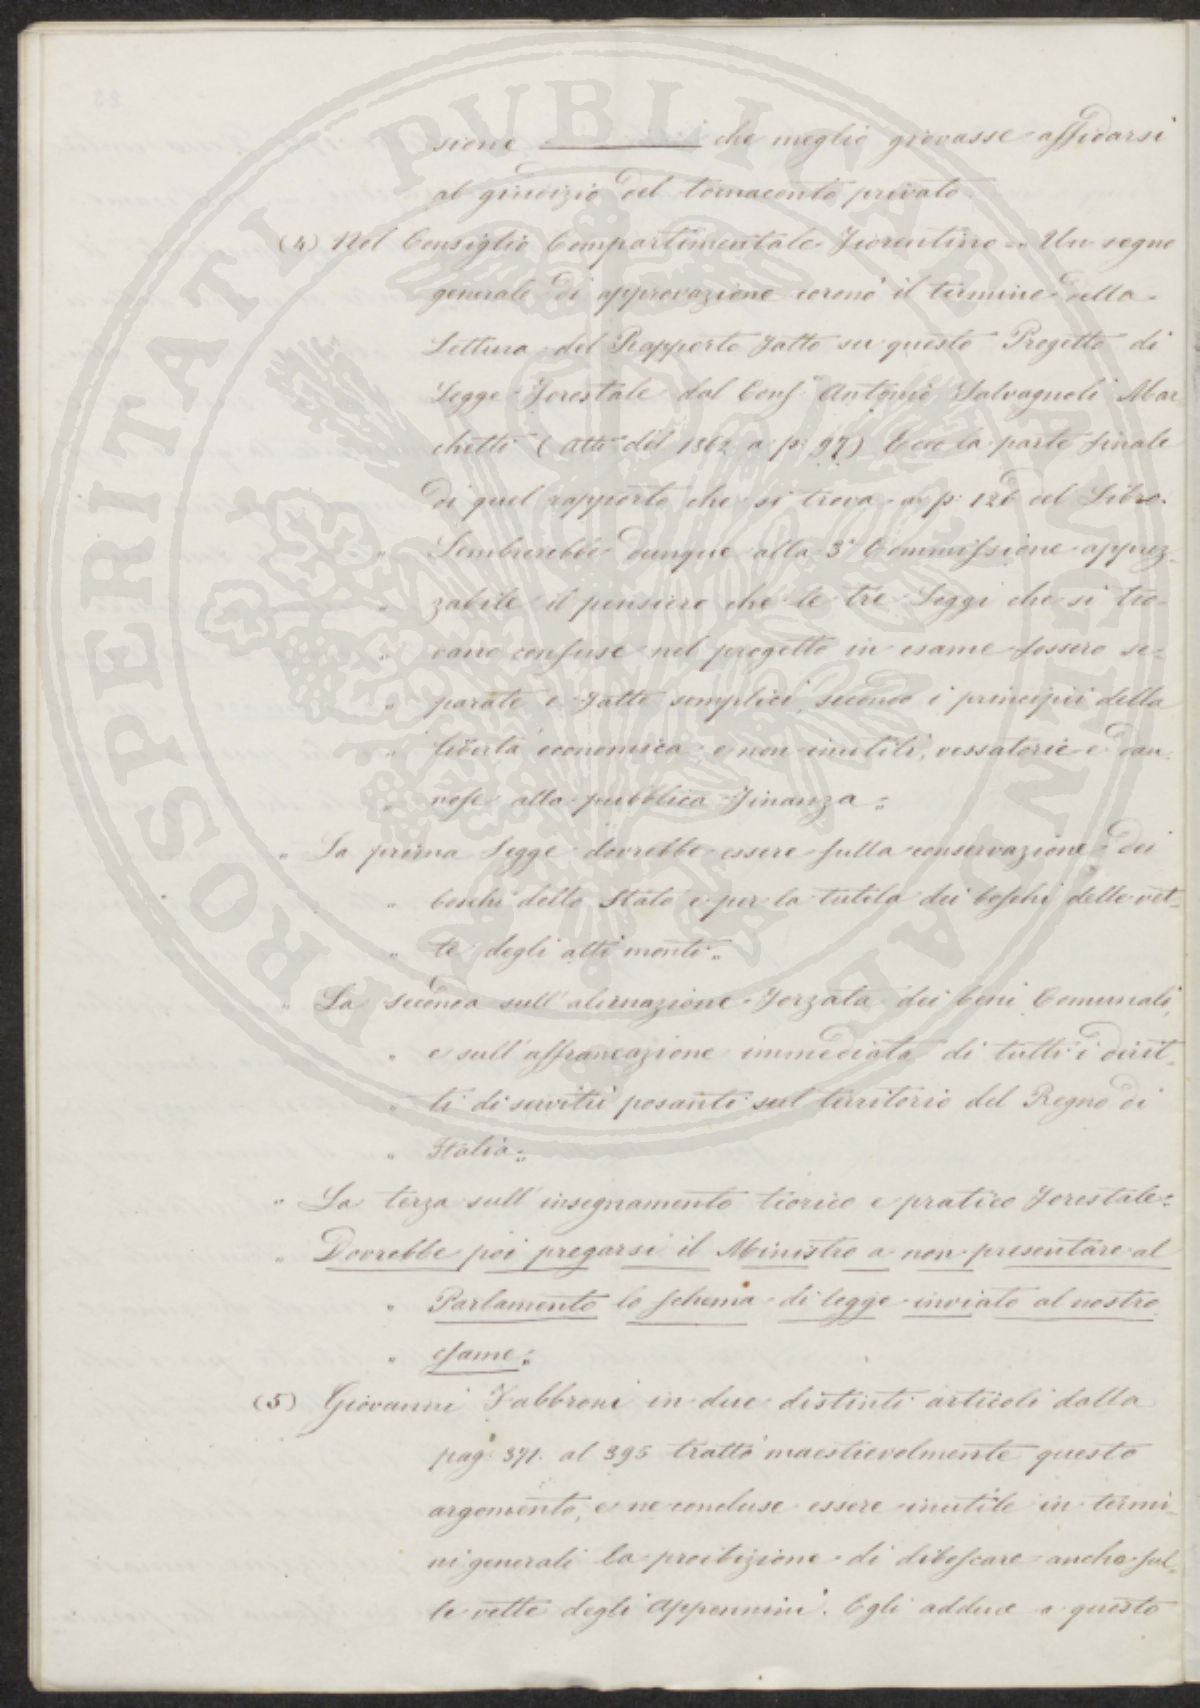 sione che meglio giovasse affidarsi
al giudizio del tornaconto privato.
(4) Nel Consiglio Compartimentale Fiorentino = Un segno
generale di approvazione coronò il termine della
Lettura del Rapporto fatto su questo Progetto di
Legge Forestale dal Cons.e Antonio Salvagnoli Mar=
chetti (Atti del 1862 a p: 97) Ecco la parte finale
di quel rapporto che si trova a p: 126 del Libro.
" Sembrerebbe dunque alla 3a Commissione apprez=
" zabile il pensiero che le tre Leggi che si tro=
" vano confuse nel progetto in esame fossero se=
" parate e fatte semplici, secondo i principii della
" libertà economica, e non inutili, vessatorie e dan=
" nose alla pubblica Finanza „
" La prima Legge dovrebbe essere sulla conservazione dei
" boschi dello Stato e per la tutela dei boschi delle vet=
" te degli alti monti „
" La seconda sull'alienazione forzata dei beni Comunali,
" e sull'affrancazione immediata di tutti i dirit=
" ti di servitù posanti sul territorio del Regno di
" Italia „
" La terza sull'insegnamento teorico e pratico forestale „
" Dovrebbe poi pregarsi il Ministro a non presentare al
" Parlamento lo schema di legge inviato al nostro
" esame „
(5) Giovanni Fabbroni in due distinti articoli dalla
pag: 371. al 395 trattò maestrevolmente questo
argomento, e ne concluse essere inutile in termi=
ni generali la proibizione di diboscare anche sul=
le vette degli Appennini. Egli adduce a questo
PROSPERITATI PVBLICAE AVGENDAE